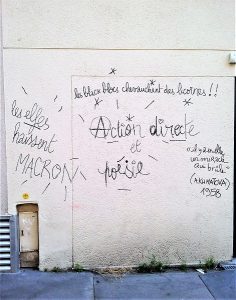 les blacks blocs chevauchent des licornes !!
les elfes
haïssent
MACRON
Action directe
et
poésie
" il y a
un miracle
qui brûle "
(AKHMATOVA)
1958